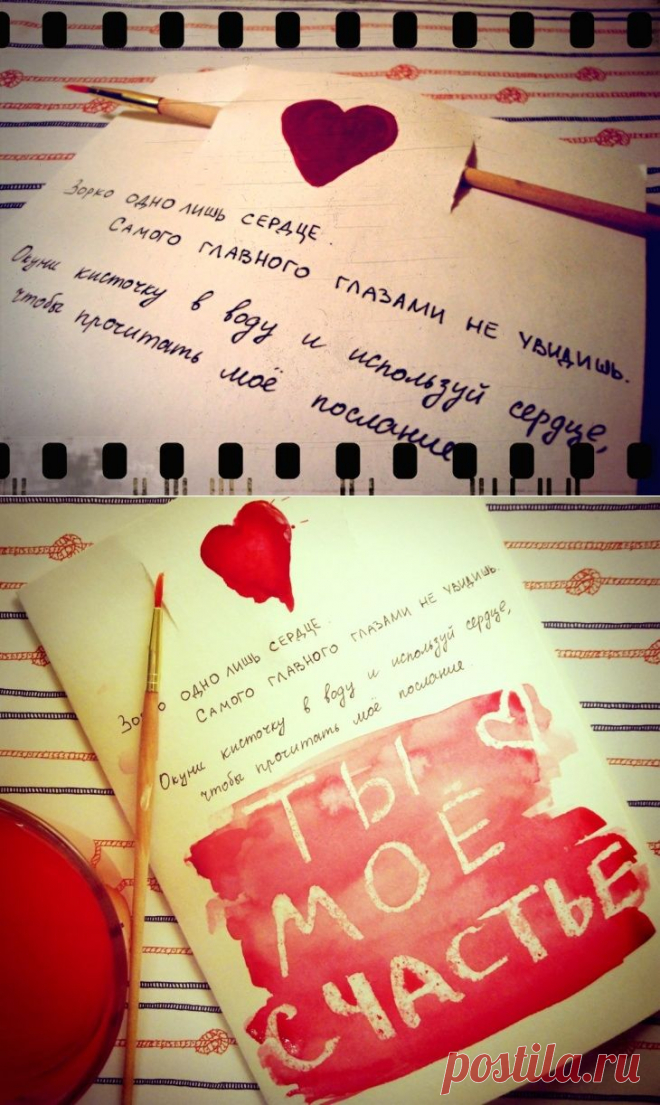 Зорко одно лишь сердце.
Самого главного глазами не увидишь.
Окуни кисточку в воду и используй сердце,
чтобы прочитать моё послание
Зорко одно лишь сердце.
Самого главного глазами не увидишь.
Окуни кисточку в воду и используй сердце,
чтобы прочитать моё послание.
ТЫ
МОЁ
СЧАСТЬЕ
postila.ru